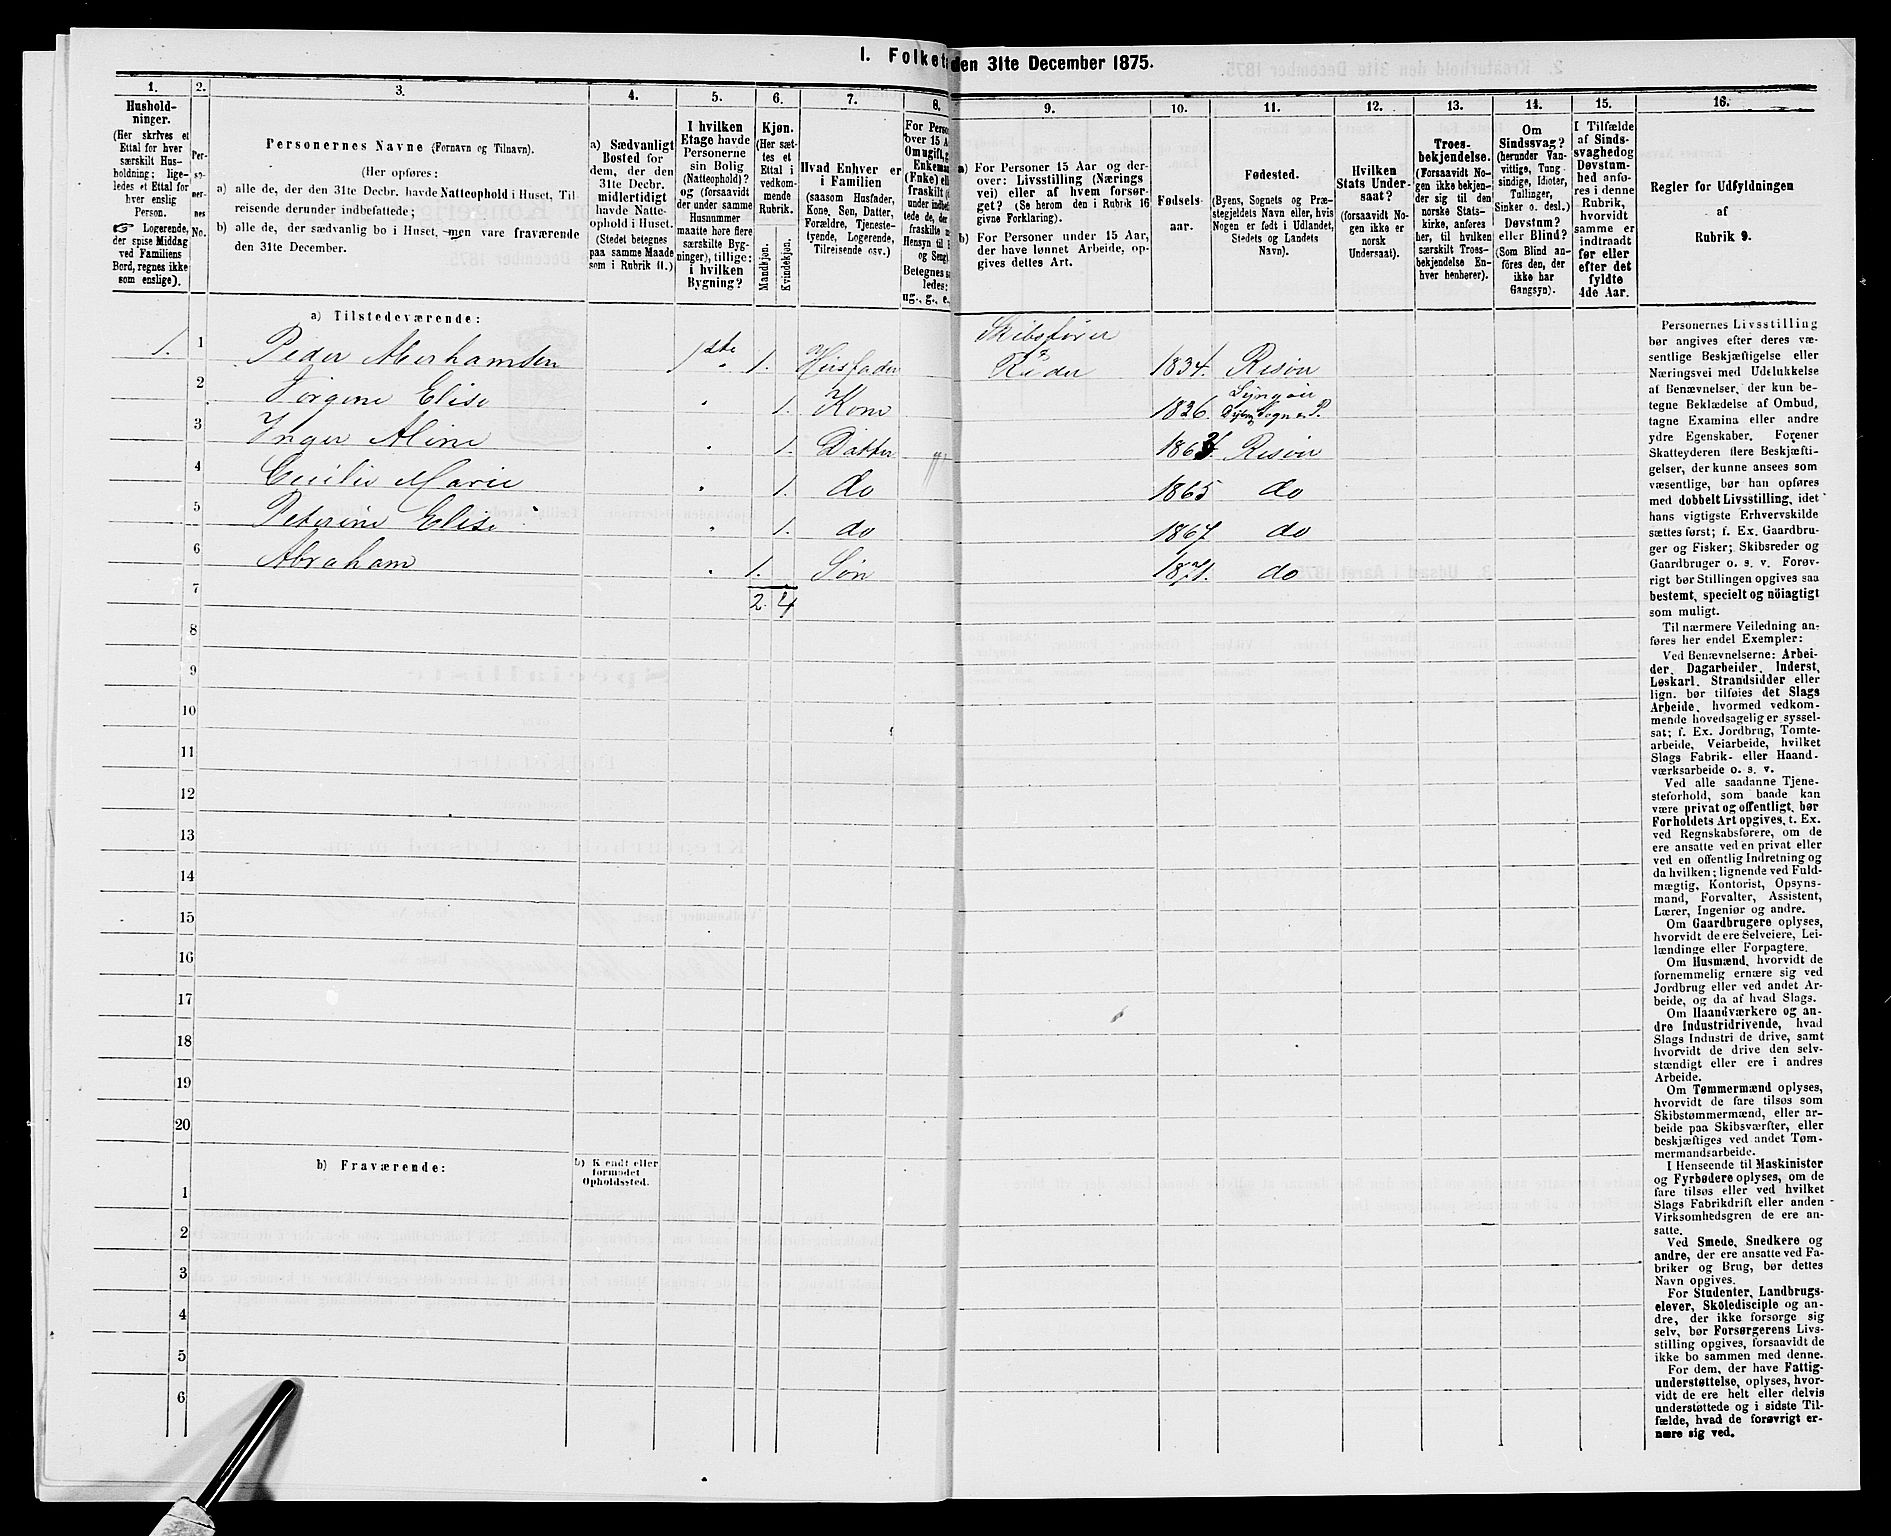 I. Folket
den 31te December 1875.
1.
Hushold-
ninger.
(Her skrives et
Ettal for hver
særskilt Hus-
holdning; lige-
ledes et Ettal for
hver enslig
Person.
☞ Logerende,
der spise Middag
ved Familiens
Bord, regnes ikke
som enslige).
2.
Per-
so-
ner-
nes
No.
3.
Personernes Navne (Fornavn og Tilnavn).
(Her opføres:
a) alle de, der den 31te Decbr. havde Natteophold i Huset, Til-
reisende derunder indbefattede;
b) alle de, der sædvanlig bo i Huset, men vare fraværende
den 31te December.
4.
a) Sædvanligt
Bosted for
dem, der den
31te Decbr.
midlertidigt
havde Natte-
ophold i Huset.
(Stedet betegnes
paa samme Maade
som i Rubrik II.)
5.
I hvilken
Etage havde
Personerne
sin Bolig
(Natteophold)?
og (forsaavidt
der under samme
Husnummer
maatte høre flere
særskilte Byg-
ninger), tillige:
i hvilken
Bygning?
6.
Kjøn.
(Her sæt-
tes et
Ettal i
vedkom-
mende
Rubrik.
Mandkjøn.
Kvindekjøn.
7.
Hvad Enhver er
i Familien
(saasom Husfader,
Kone, Søn, Datter,
Forældre, Tjeneste-
tyende, Logerende,
Tilreisende osv.)
8.
For Perso
over 15 A
Om ugift, g
Enkeman
(Enke) ell
fraskilt
tede de, der
fraskilte
Hensyn til
og Seng).
Betegnes s
ledes:
ug., g., e.
9.
a) For Personer 15 Aar og der-
over: Livsstilling (Nærings
vei) eller af hvem forsør-
get? (Se herom den i Rubrik 16
givne Forklaring).
b) For Personer under 15 Aar,
der have lønnet Arbeide, op-
gives dettes Art.
10.
Fødsels-
aar.
11.
Fødested.
(Byens, Sognets og Præ-
stegjeldets Navn eller, hvis
Nogen er født i Udlandet,
Stedets og Landets
Navn).
12.
Hvilken
Stats Under-
saat?
(forsaavidt No-
gen ikke er
norsk
Undersaat).
13.
Troes-
bekjendelse.
(Forsaavidt No-
gen ikke bekjen-
der sig til den
norske Stats-
kirke, anføres
her, til hvilken
særskilt Troes-
bekjendelse En-
hver henhører).
14.
Om
Sindssvag?
(herunder Van-
vittige, Tung
sindige, Idioter,
Tullinger,
Sinker o. desl.)
Døvstum?
eller Blind?
(Som Blind an-
føres den, der
ikke har
Gangsyn).
15.
I Tilfælde
af Sinds-
svaghed og
Døvstum-
hed anfø-
res i denne
Rubrik,
hvorvidt
samme er
indtraadt
før eller
efter det
fyldte
4de Aar.
16.
Regler for Udfyldningen
af
Rubrik 9.
a) Tilstedeværende:
1. 1 Peder Aberhamsen 1ste 1. Husfader Skibsfører Reder 1834. Risør
2 Jørgine Elise " 1. Kone 1826. Lyngør Dybvs Sogn P.
3 Inger Aline " 1. Datter 186 Risør
4 Cecilie Marie " 1. do 1865 do
5 Peterine Elise " 1. do 1867 do
6 Abraham " 1. Søn 1871. do
7 2. 4
8
9
10
11
12
13
14
15
16
17
18
19
20
b) Fraværende:
b) Kjendt eller
formodet
Opholdssted.
1
2
3
4
5
6
Personernes Livsstilling
bør angives efter deres væ-
sentlige Beskjæftigelse eller
Næringsvei med Udelukkelse
af Benævnelser, der kun be-
tegne Beklædelse af Ombud,
tagne Examina eller andre
ydre Egenskaber. Forener
Skatteyderen flere Beskjæfti-
gelser, der kunne ansees som
væsentlige, bør han opføres
med dobbelt Livsstilling, idet
hans vigtigste Erhvervskilde
sættes først; f. Ex. Gaardbru-
ger og Fisker; Skibsreder og
Gaardbruger o. s. v. Forøv-
rigt bør Stillingen opgives saa
bestemt, specielt og nöiagtigt
som muligt.
Til nærmere Veiledning an-
føres her endel Exempler:
Ved Benævnelserne: Arbei-
der, Dagarbeider, Inderst,
Løskarl, Strandsidder eller
lign. bør tilføies det Slags
Arbeide, hvormed vedkom-
mende hovedsagelig er syssel-
sat; f. Ex. Jordbrug, Tomte-
arbeide, Veiarbeide, hvilket
Slags Fabrik- eller Haand-
værksarbeide o. s. v.
Ved alle saadanne Tjene-
steforhold, som baade kan
være privat og offentligt, bør
Forholdets Art opgives, t. Ex.
ved Regnskabsførere, om de
ere ansatte ved en privat eller
ved en offentlig Indretning og
da hvilken; lignende ved Fuld-
mægtig, Kontorist, Opsyns-
mand, Forvalter, Assistent,
Lærer, Ingeniør og andre.
Om Gaardbrugere oplyses,
hvorvidt de ere Selveiere, Lei-
lændinge eller Forpagtere.
Om Husmænd, hvorvidt de
fornemmelig ernære sig ved
Jordbrug eller ved andet Ar-
beide, og da af hvad Slags.
Om Haandværkere og an-
dre Industridrivende, hvad
Slags Industri de drive, samt
hvorvidt de drive den selv-
stændigt eller ere i andres
Arbeide.
Om Tømmermænd oplyses,
hvorvidt de fare tilsøs som
Skibstømmermænd, eller ar-
beide paa Skibsværfter, eller
beskjæftiges ved andet Tøm-
mermandsarbeide.
I Henseende til Maskinister
og Fyrbødere oplyses, om de
fare tilsøs eller ved hvilket
Slags Fabrikdrift eller anden
Virksomhedsgren de ere an-
satte.
Ved Smede, Snedkere og
andre, der ere ansatte ved Fa-
briker og Brug, bør dettes
Navn opgives.
For Studenter, Landbrugs-
elever, Skoledisciple og an-
dre, der ikke forsørge sig
selv, bør Forsørgerens Livs-
stilling opgives, forsaavidt de
ikke bo sammen med denne.
For dem, der have Fattig-
understøttelse, oplyses, hvor-
vidt de ere helt eller delvis
understøttede og i sidste Til-
fælde, hvad de forøvrigt er-
nære sig ved.